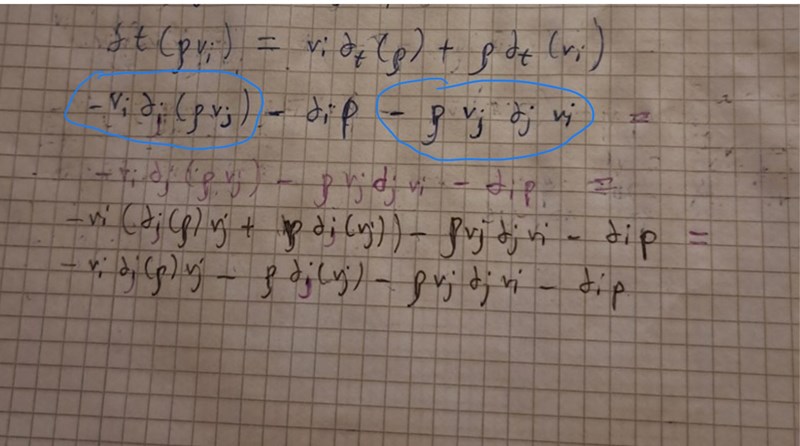 ∂t(ρvi) = vi ∂t(ρ) + ρ ∂t(vi)
-vi ∂j(ρvj) - ∂i p - ρ vj ∂j vi =
-vi ∂j(ρvj) - ρvj ∂j vi - ∂i p =
-vi (∂j(ρ)vj + ρ ∂j(vj)) - ρvj ∂j vi - ∂i p =
-vi ∂j(ρ)vj - ρ ∂j(vj) - ρvj ∂j vi - ∂i p